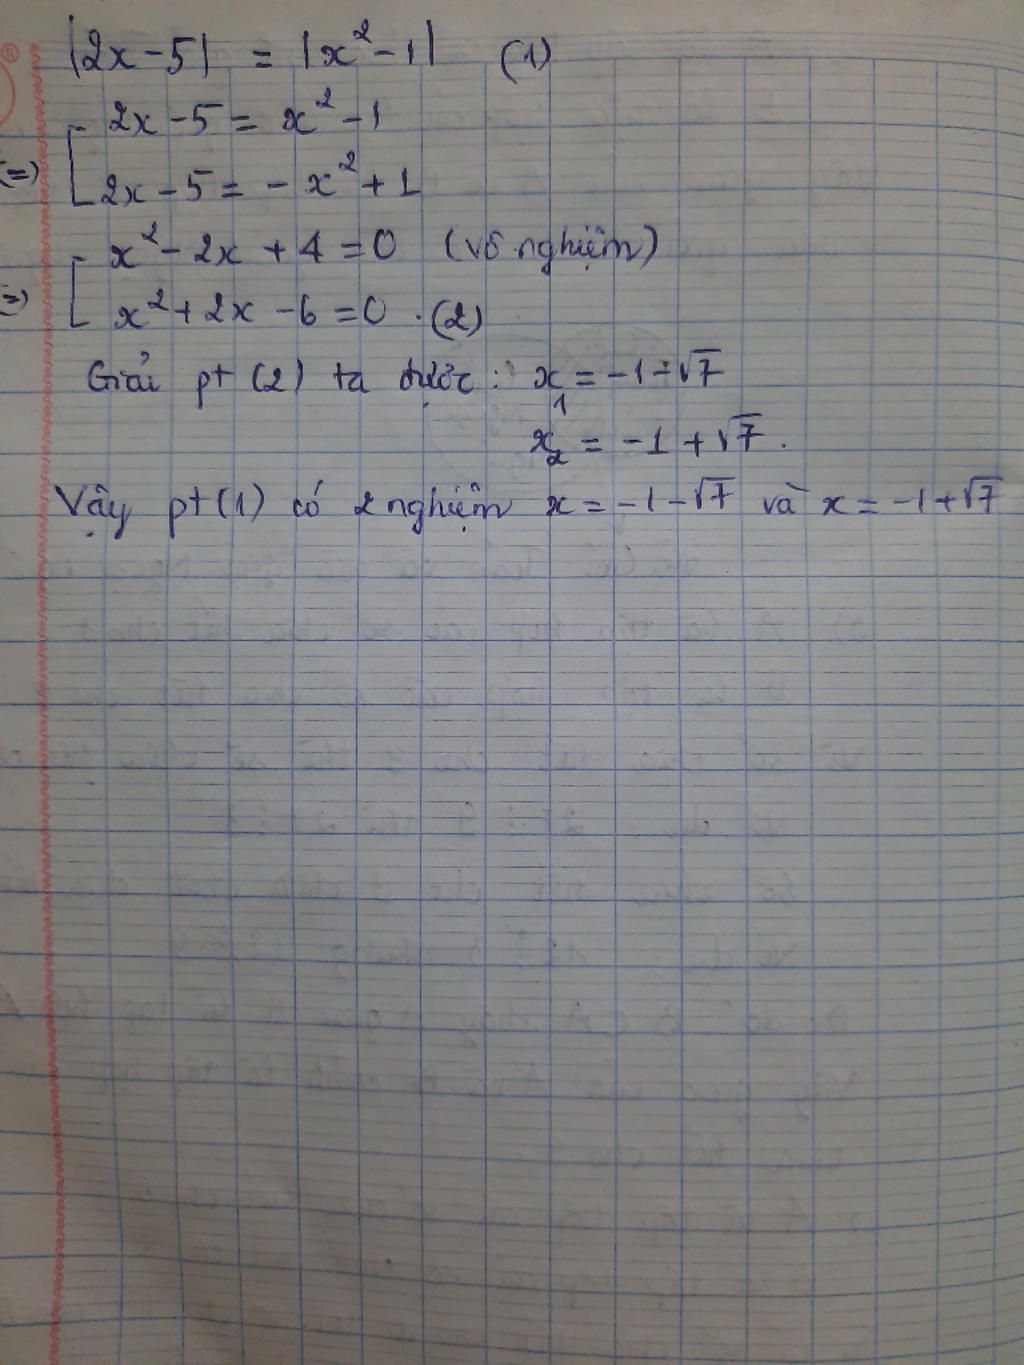 |2x-5| = |x²-1| (1)
2x-5 = x²-1
(=) 2x-5 = -x²+1
x²-2x+4=0 (vô nghiệm)
(=) x²+2x-6=0 . (2)
Giải pt (2) ta được: x₁ = -1-√7
x₂ = -1+√7.
Vậy pt(1) có 2 nghiệm x = -1-√7 và x = -1+√7